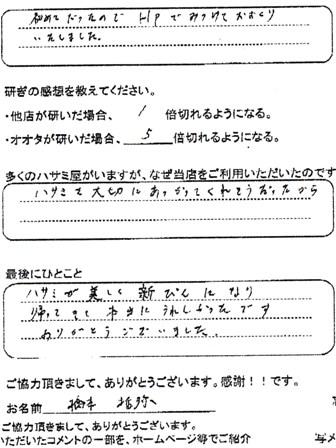 初めてだったので HPで みつけておくり
いたしました。
研ぎの感想を教えてください。
・他店が研いだ場合、 1 倍切れるようになる。
・オオタが研いだ場合、 5 倍切れるようになる。
多くのハサミ屋がいますが、なぜ当店をご利用いただいたのです
ハサミを大切にあつかってくれそうだったから
最後にひとこと
ハサミが美しく新ぴんになり
帰ってきて本当にうれしかったです
ありがとうございました。
ご協力頂きまして、ありがとうございます。感謝！！です。
お名前
ご協力頂きまして、ありがとうございます。
いただいたコメントの一部を、ホームページ等でご紹介